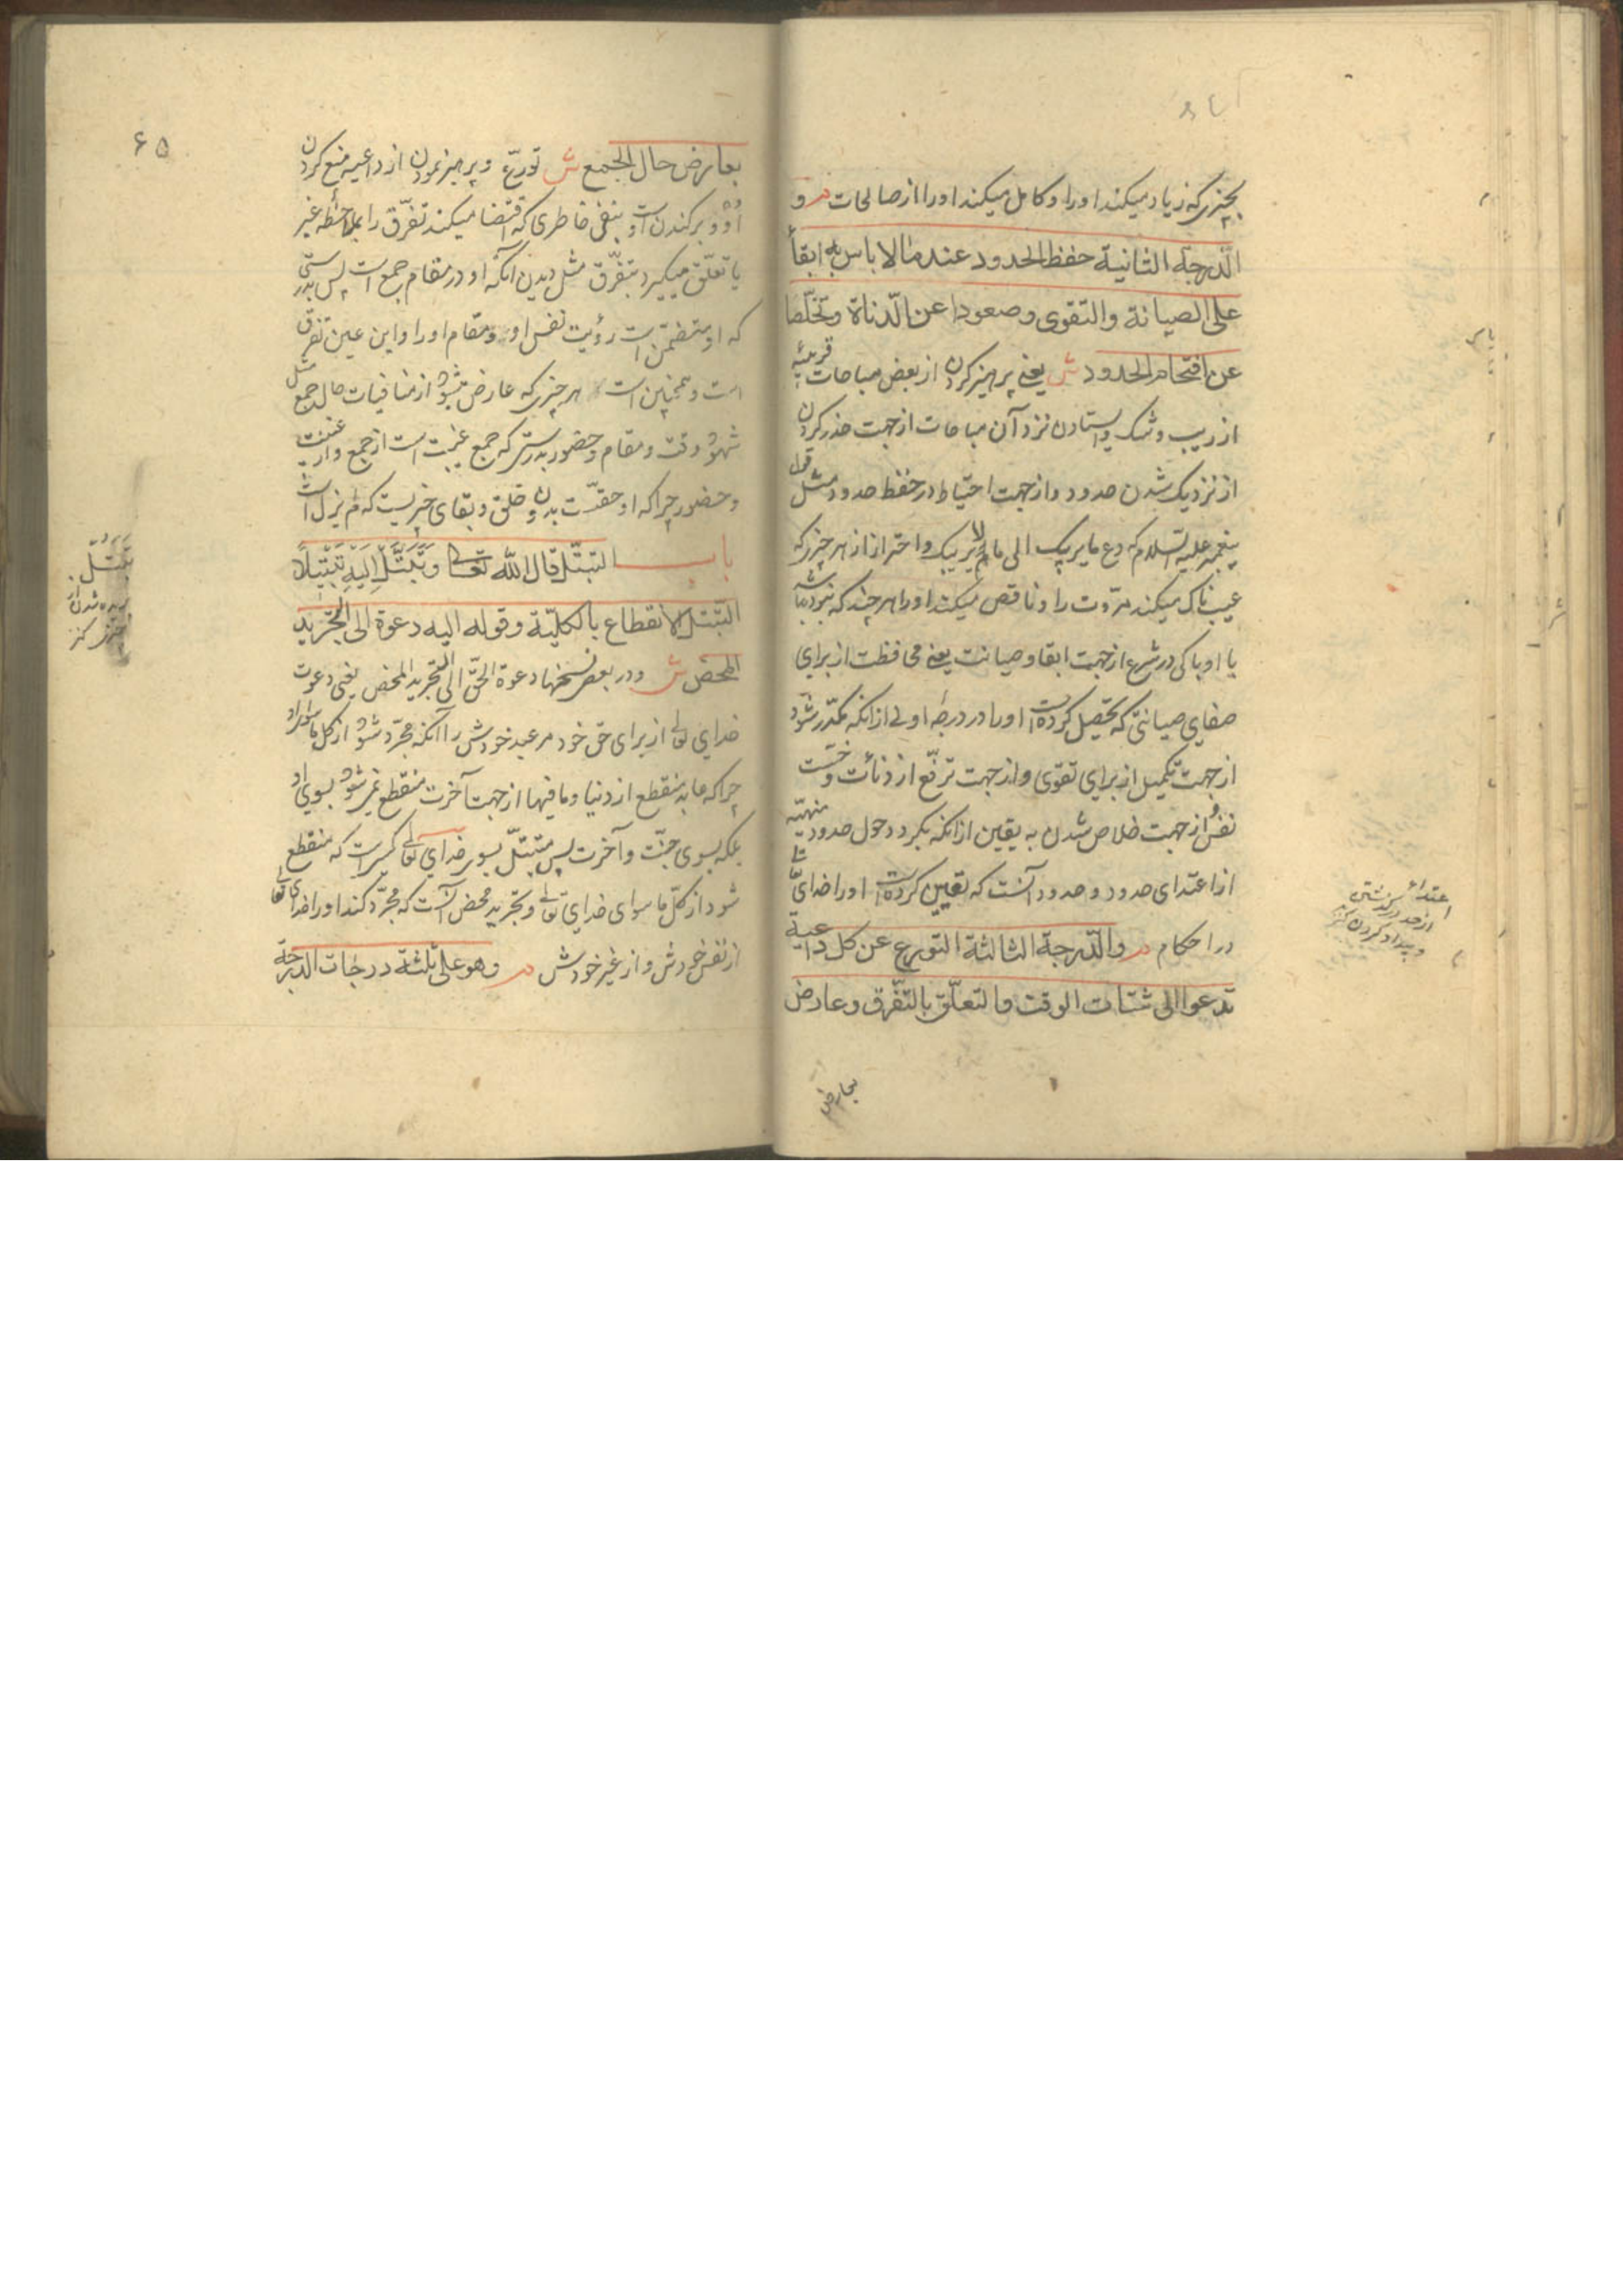 بچیزی که زیاد میکند او را و کامل میکند او را از صالحات م و
الدرجة الثانیة حفظ الحدود عند ما لا باس به ابقأ
علی الصیانة والتقوی وصعودا عن الدناة وتخلّصا
عن اقتحام الحدود ش یعنی پرهیز کردن از بعض مباحات قریبه
از ریب و شک و ایستادن نزد آن مباحات از جهت حذر کردن
از نزدیک شدن حدود و از جهت احتیاط در حفظ حدود مثل قول
پیغمبر علیه السلام که دع ما یریبک الی ما لا یریبک و احتراز از هر چیزی که
عیب ناک میکند مروّت را و ناقص میکند او را هر چند که نبوده باشد
با او باکی در شرع از جهت ابقا و صیانت یعنی محافظت از برای
صفای صیانتی که تحصیل کرده است او را در درجه اولی از آنکه مکدّر شود
از جهت تکمیل از برای تقوی و از جهت ترفّع از دنائت و خسّت
نفس و از جهت خلاص شدن به یقین از آنکه بگردد حول حدود منهیّه
از اعتدای حدود و حدود آنست که تعیین کرده است او را خدای تعا
در احکام م والدّرجة الثالثة التورع عن کل داعیة
تدعوا الی شتات الوقت والتعلّق بالتفّرق وعارض
یعارض
اعتداء
از حد درگذشتن
و بیداد کردن کنز
۶۵
یعارض حال الجمع ش تورّع و پرهیز نمودن از داعیه منع کردن
او و برکندن اوست بنفی خاطری که اقتضا میکند تفرّق را بملاحظه غیر
یا تعلّق میگیرد بتفرّق مثل دیدن آنکه او در مقام جمع است پس بدرستی
که او متضمّن است رؤیت نفس او و مقام او را و این عین تفرّق
است و همچنین است هر چیزی که عارض میشود از منافیات حال جمع مثل
شهود وقت و مقام و حضور بدرستی که جمع غیبت است از جمع و از غیبت
و حضور چرا که او حقّست بدون خلق و بقای چیزیست که لم یزل است
باب التبتّل قال الله تعالی وَتَبَتَّلْ اِلَیْهِ تَبْتِیلاً
التبتل الانقطاع بالکلیّة وقوله الیه دعوة الی التجرید
المحض ش و در بعض نسخها دعوة الحقّ الی التجرید المحض یعنی دعوت
خدای تعالی از برای حق خود مر عبد خودش را آنکه مجرّد شود از کل ماسوای او
چرا که عابد منقطع از دنیا و مافیها از جهت آخرت منقطع نمیشود بسوی او
بلکه بسوی جنّت و آخرت پس متبتّل بسوی خدای تعالی کسی است که منقطع
شود از کلّ ماسوای خدای تعالی و تجرید محض آنست که مجرّد کند او را خدای تعالی
از نفس خودش و از غیر خودش م وهو علی ثلثة درجات الدرجة
تبتّل
بریده شدن از
کنز